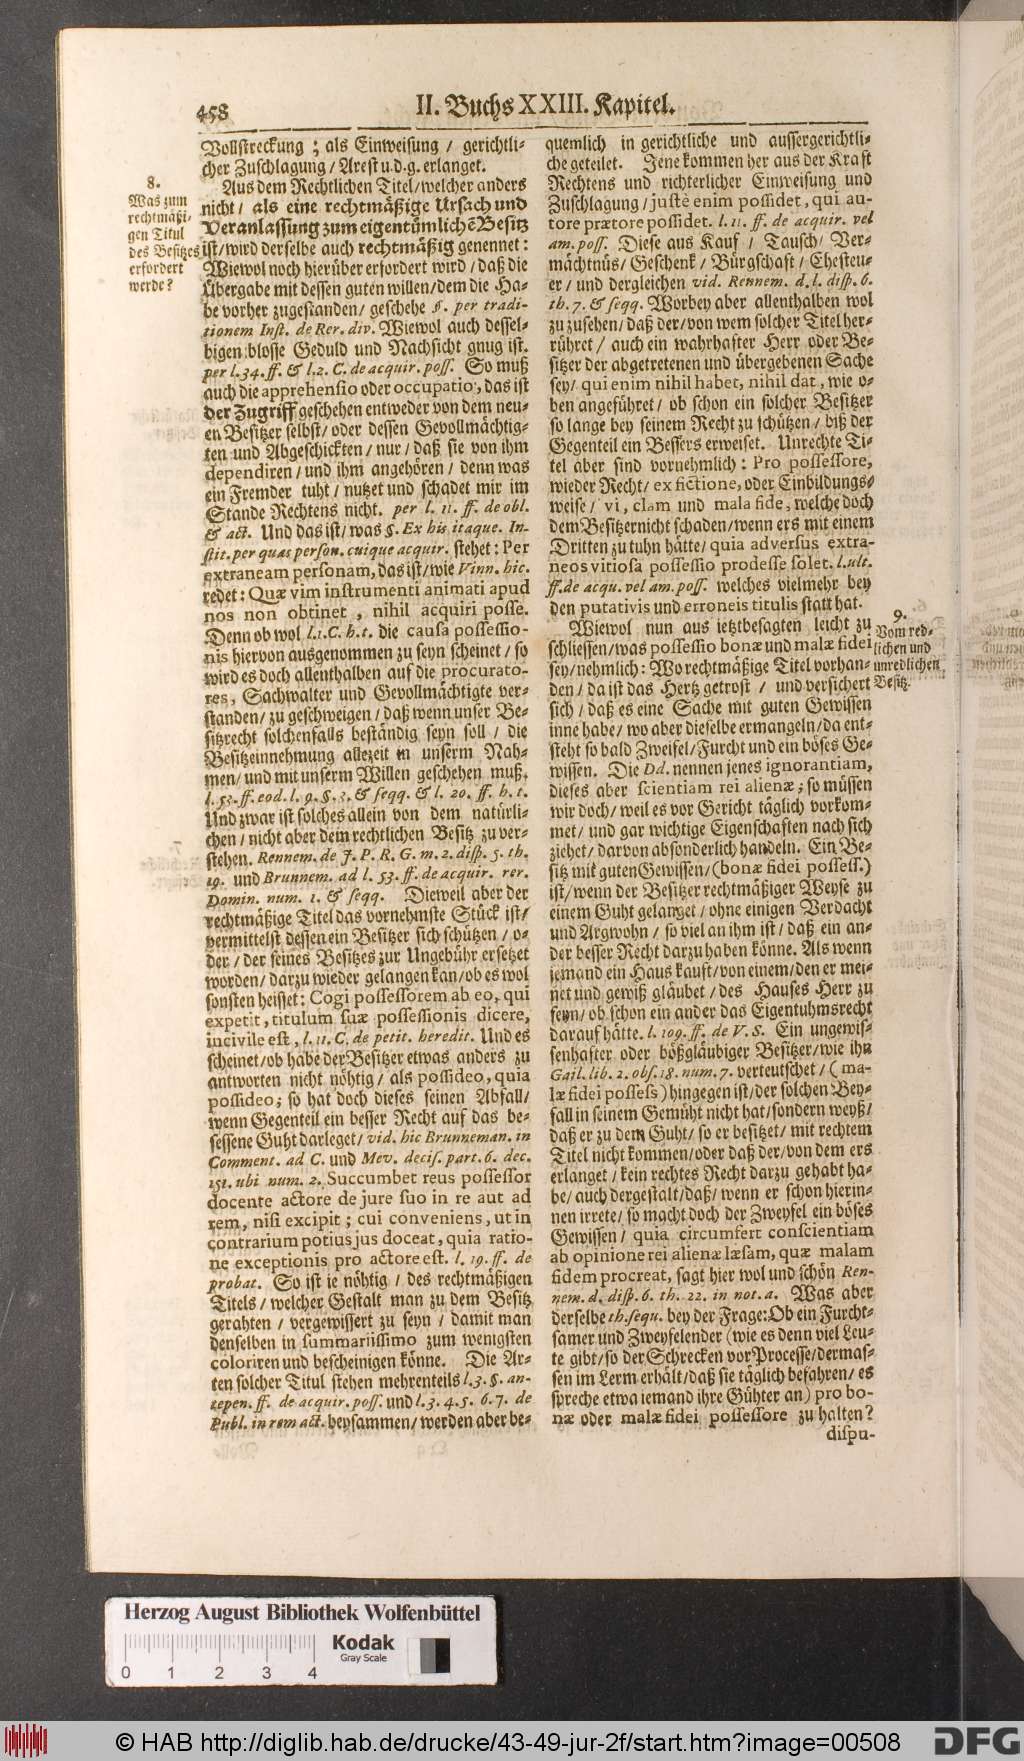 458
II. Buchs XXIII. Kapitel.
Vollstreckung; als Einweisung / gerichtli-
cher Zuschlagung / Arest u.d.g. erlanget.
8.
Was zum
rechtmäßi-
gen Titul
des Besitzes
erfordert
werde?
Aus dem Rechtlichen Titel/welcher anders
nicht/ als eine rechtmäßige Ursach und
Veranlassung zum eigentümlichē Besitz
ist/wird derselbe auch rechtmäßig genennet:
Wiewol noch hierüber erfordert wird / daß die
Übergabe mit dessen guten willen/dem die Ha-
be vorher zugestanden/ geschehe §. per tradi-
tionem Inst. de Rer. div. Wiewol auch dessel-
bigen blosse Geduld und Nachsicht gnug ist.
per l. 34. ff. & l. 2. C. de acquir. poss. So muß
auch die apprehensio oder occupatio, das ist
der Zugriff geschehen entweder von dem neu-
en Besitzer selbst/ oder dessen Gevollmächtig-
ten und Abgeschickten / nur / daß sie von ihm
dependiren / und ihm angehören / denn was
ein Fremder tuht / nutzet und schadet mir im
Stande Rechtens nicht. per l. 11. ff. de obl.
& act. Und das ist/ was §. Ex his itaque. In-
stit. per quas person. cuique acquir. stehet: Per
extraneam personam, das ist/wie Vinn. hic.
redet: Quæ vim instrumenti animati apud
nos non obtinet, nihil acquiri posse.
Denn ob wol l. 1. C. h. t. die causa possessio-
nis hiervon ausgenommen zu seyn scheinet / so
wird es doch allenthalben auf die procurato-
res, Sachwalter und Gevollmächtigte ver-
standen/ zu geschweigen / daß wenn unser Be-
sitzrecht solchenfalls beständig seyn soll / die
Besitzeinnehmung allezeit in unserm Nah-
men/ und mit unserm Willen geschehen muß.
l. 53. ff. eod. l. 9. §. 3. & seqq. & l. 20. ff. h. t.
Und zwar ist solches allein von dem natürli-
chen / nicht aber dem rechtlichen Besitz zu ver-
stehen. Rennem. de J. P. R. G. m. 2. disp. 5. th.
19. und Brunnem. ad l. 53. ff. de acquir. rer.
Domin. num. 1. & seqq. Dieweil aber der
rechtmäßige Titel das vornehmste Stück ist/
vermittelst dessen ein Besitzer sich schützen / o-
der / der seines Besitzes zur Ungebühr ersetzet
worden/ darzu wieder gelangen kan/ ob es wol
sonsten heisset: Cogi possessorem ab eo, qui
expetit, titulum suæ possessionis dicere,
incivile est, l. 11. C. de petit. heredit. Und es
scheinet/ob habe der Besitzer etwas anders zu
antworten nicht nöhtig / als possideo, quia
possideo; so hat doch dieses seinen Abfall/
wenn Gegenteil ein besser Recht auf das be-
sessene Guht darleget/ vid. hic Brunneman. in
Comment. ad C. und Mev. decis. part. 6. dec.
151. ubi num. 2. Succumbet reus possessor
docente actore de jure suo in re aut ad
rem, nisi excipit; cui conveniens, ut in
contrarium potius jus doceat, quia ratio-
ne exceptionis pro actore est. l. 19. ff. de
probat. So ist ie nöhtig / des rechtmäßigen
Titels/ welcher Gestalt man zu dem Besitz
gerahten / vergewissert zu seyn / damit man
denselben in summariissimo zum wenigsten
coloriren und bescheinigen könne. Die Ar-
ten solcher Titul stehen mehrenteils l. 3. §. an-
tepen. ff. de acquir. poss. und l. 3. 4. 5. 6. 7. de
Publ. in rem act. beysammen/ werden aber be-
quemlich in gerichtliche und aussergerichtli-
che geteilet. Jene kommen her aus der Kraft
Rechtens und richterlicher Einweisung und
Zuschlagung / justè enim possidet, qui au-
tore prætore possidet. l. 11. ff. de acquir. vel
am. poss. Diese aus Kauf / Tausch/ Ver-
mächtnüs/ Geschenk / Bürgschaft / Ehesteu-
er / und dergleichen vid. Rennem. d. l. disp. 6.
th. 7. & seqq. Worbey aber allenthalben wol
zu zusehen/ daß der/von wem solcher Titel her-
rühret / auch ein wahrhafter Herr oder Be-
sitzer der abgetretenen und übergebenen Sache
sey/ qui enim nihil habet, nihil dat, wie o-
ben angeführet/ ob schon ein solcher Besitzer
so lange bey seinem Recht zu schützen / biß der
Gegenteil ein Bessers erweiset. Unrechte Ti-
tel aber sind vornehmlich: Pro possessore,
wieder Recht/ ex fictione, oder Einbildungs-
weise / vi, clam und mala fide, welche doch
dem Besitzer nicht schaden/wenn ers mit einem
Dritten zu tuhn hätte/ quia adversus extra-
neos vitiosa possessio prodesse solet. l. ult.
ff. de acqu. vel am. poss. welches vielmehr bey
den putativis und erroneis titulis statt hat.
9.
Vom red-
lichen und
unredlichen
Besitz.
Wiewol nun aus ietztbesagten leicht zu
schliessen/was possessio bonæ und malæ fidei
sey/nehmlich: Wo rechtmäßige Titel vorhan-
den / da ist das Hertz getrost / und versichert
sich / daß es eine Sache mit guten Gewissen
inne habe/ wo aber dieselbe ermangeln/da ent-
steht so bald Zweifel/Furcht und ein böses Ge-
wissen. Die Dd. nennen jenes ignorantiam,
dieses aber scientiam rei alienæ; so müssen
wir doch/ weil es vor Gericht täglich vorkom-
met/ und gar wichtige Eigenschaften nach sich
ziehet/ darvon absonderlich handeln. Ein Be-
sitz mit guten Gewissen/ (bonæ fidei possess.)
ist/wenn der Besitzer rechtmäßiger Weyse zu
einem Guht gelanget / ohne einigen Verdacht
und Argwohn / so viel an ihm ist/ daß ein an-
der besser Recht darzu haben könne. Als wenn
jemand ein Haus kauft/von einem/den er mei-
net und gewiß gläubet / des Hauses Herr zu
seyn/ ob schon ein ander das Eigentuhmsrecht
darauf hätte. l. 109. ff. de V. S. Ein ungewis-
senhafter oder bößgläubiger Besitzer/wie ihn
Gail. lib. 2. obs. 18. num. 7. verteutschet / (ma-
læ fidei possess) hingegen ist/der solchen Bey-
fall in seinem Gemüht nicht hat/sondern weyß/
daß er zu dem Guht/ so er besitzet/ mit rechtem
Titel nicht kommen/oder daß der/von dem ers
erlanget / kein rechtes Recht darzu gehabt ha-
be/ auch dergestalt/daß/ wenn er schon hierin-
nen irrete/ so macht doch der Zweyfel ein böses
Gewissen / quia circumfert conscientiam
ab opinione rei alienæ læsam, quæ malam
fidem procreat, sagt hier wol und schön Ren-
nem. d. disp. 6. th. 22. in not. a. Was aber
derselbe th. sequ. bey der Frage: Ob ein Furcht-
samer und Zweyfelender (wie es denn viel Leu-
te gibt/ so der Schrecken vor Processe/ dermas-
sen im Lerm erhält/daß sie täglich befahren/ es
spreche etwa iemand ihre Gühter an) pro bo-
næ oder malæ fidei possessore zu halten?
dispu-
Herzog August Bibliothek Wolfenbüttel
Kodak
Gray Scale
0 1 2 3 4
© HAB http://diglib.hab.de/drucke/43-49-jur-2f/start.htm?image=00508
DFG